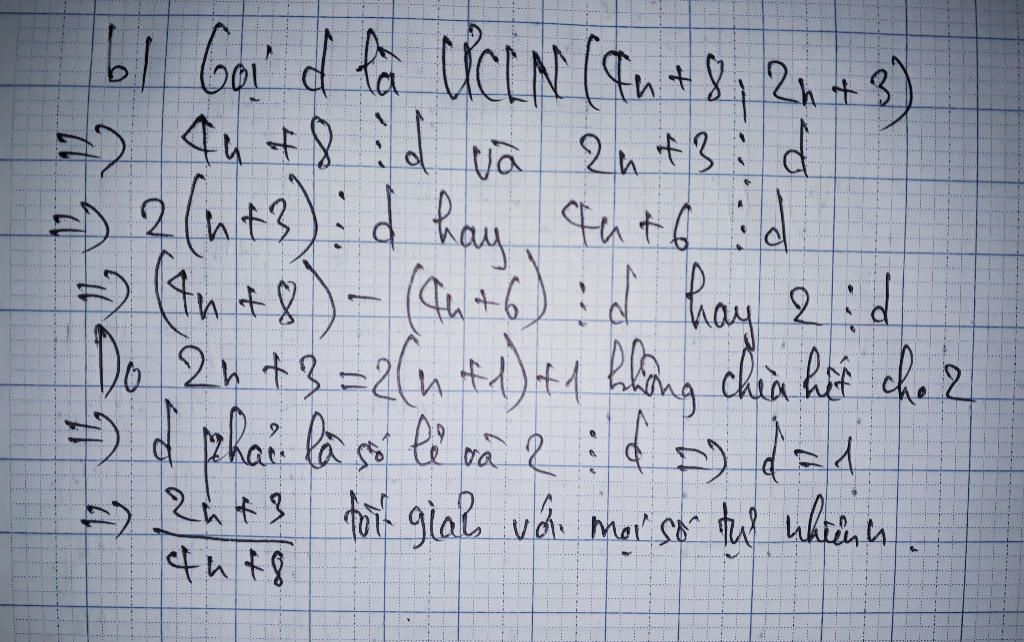 b/ Gọi d là ƯCLN (4n+8; 2n+3)
=> 4n+8 ⋮ d và 2n+3 ⋮ d
=> 2(n+3) ⋮ d hay 4n+6 ⋮ d
=> (4n+8) - (4n+6) ⋮ d hay 2 ⋮ d
Do 2n+3 = 2(n+1)+1 không chia hết cho 2
=> d phải là số lẻ và 2 ⋮ d => d = 1
=> 2n+3 tối giản với mọi số tự nhiên n.
4n+8